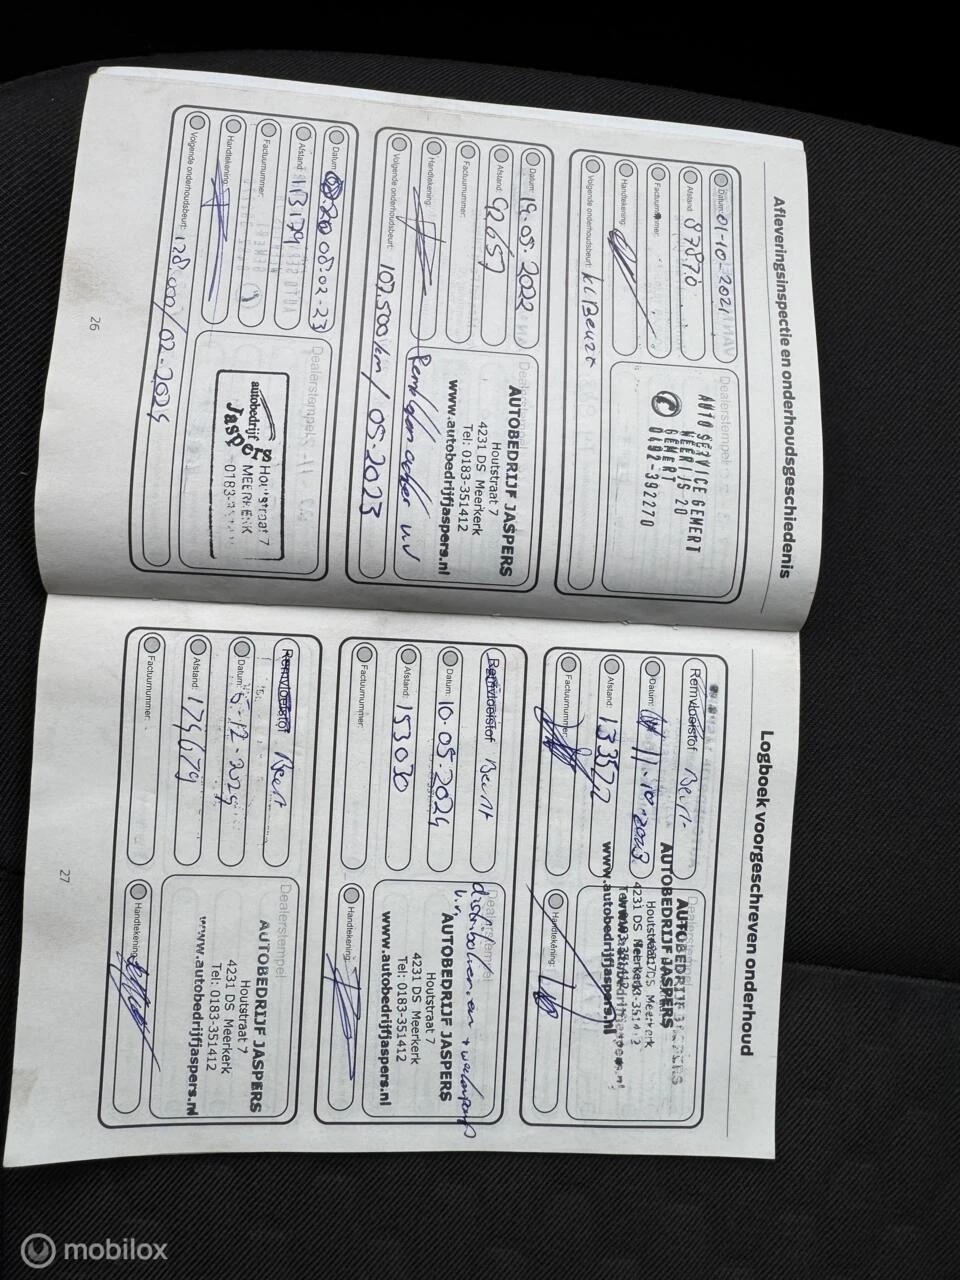 Afleveringsinspectie en onderhoudsgeschiedenis
Datum: 01-10-2021
Afstand: 87870
Factuurnummer:
Handtekening:
Volgende onderhoudsbeurt: kl Beurt
Dealerstempel
AUTO SERVICE GEMERT
WEERIJS 20
GEMERT
0492-392270
Datum: 19.05.2022
Afstand: 92657
Factuurnummer:
Handtekening:
Volgende onderhoudsbeurt: 107.500 km / 05-2023
Dealerstempel
AUTOBEDRIJF JASPERS
Houtstraat 7
4231 DS Meerkerk
Tel: 0183-351412
www.autobedrijfjaspers.nl
Remblokken achter vv
Datum: 08-02-23
Afstand: 113179
Factuurnummer:
Handtekening:
Volgende onderhoudsbeurt: 128.000 / 02-2024
Dealerstempel
autobedrijf
Jaspers
Houtstraat 7
MEERKERK
26
Logboek voorgeschreven onderhoud
Remvloeistof Beurt
Datum: 11.10.2023
Afstand: 133522
Factuurnummer:
Dealerstempel
AUTOBEDRIJF JASPERS
Houtstraat 7
4231 DS Meerkerk
Tel: 0183-351412
www.autobedrijfjaspers.nl
Handtekening:
Remvloeistof Beurt
Datum: 10.05.2024
Afstand: 153030
Factuurnummer:
Dealerstempel
distributieriem + waterpomp
v.v.
AUTOBEDRIJF JASPERS
Houtstraat 7
4231 DS Meerkerk
Tel: 0183-351412
www.autobedrijfjaspers.nl
Handtekening:
Remvloeistof Beurt
Datum: 5-12-2024
Afstand: 174679
Factuurnummer:
Dealerstempel
AUTOBEDRIJF JASPERS
Houtstraat 7
4231 DS Meerkerk
Tel: 0183-351412
www.autobedrijfjaspers.nl
Handtekening:
27
mobilox